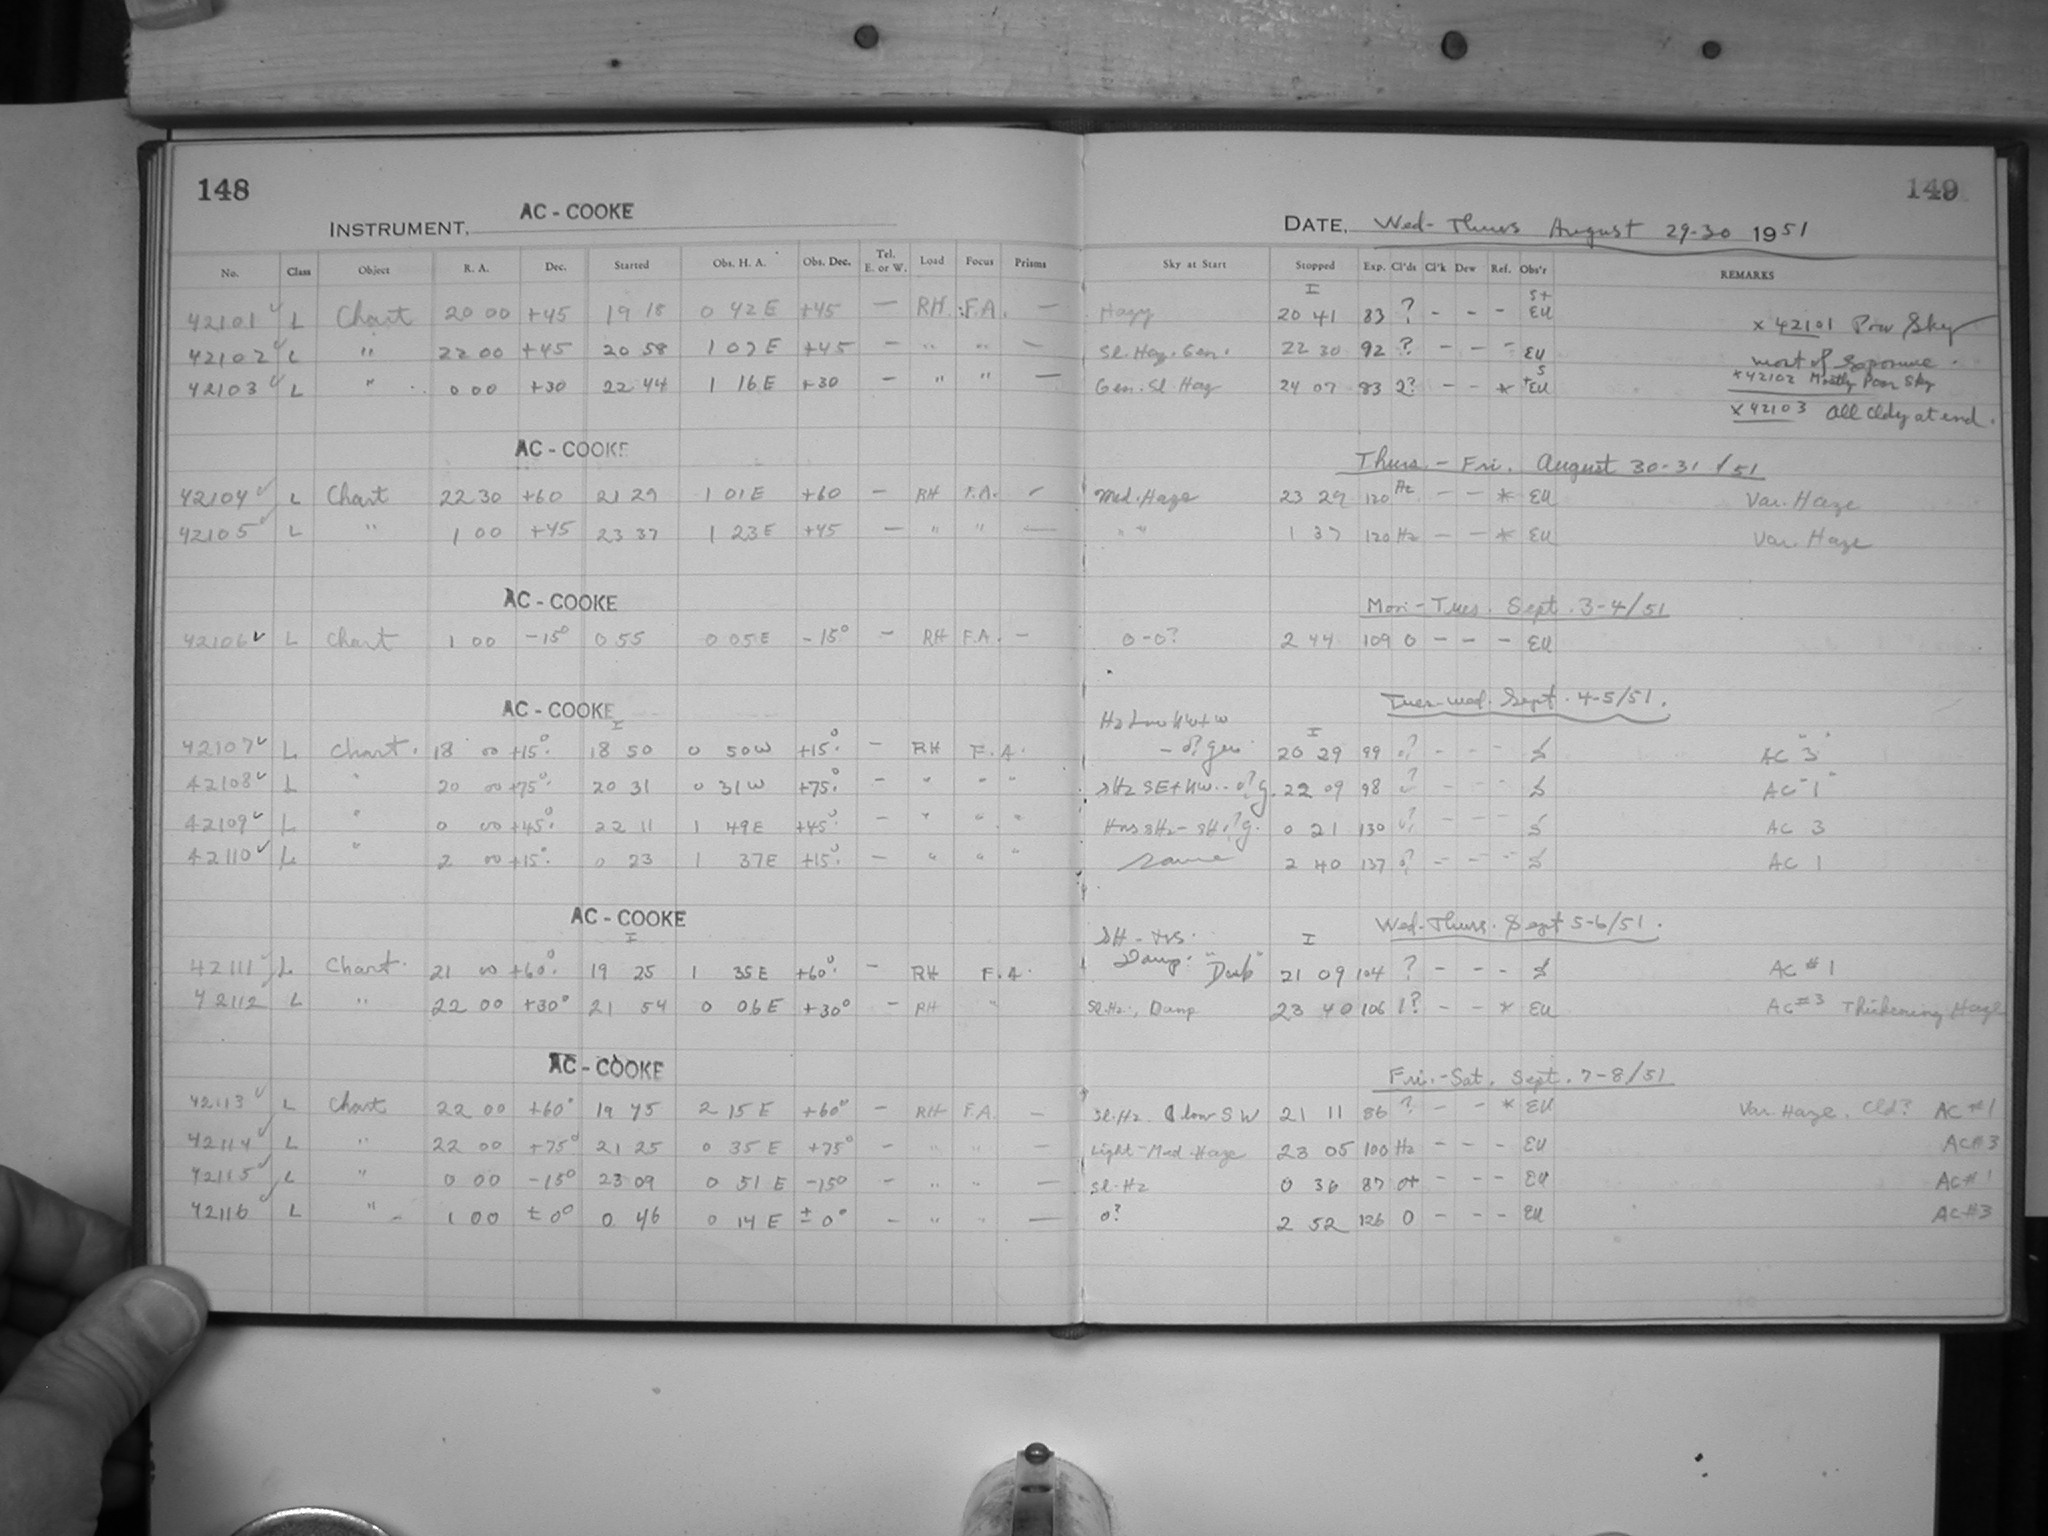 148
INSTRUMENT, AC - COOKE
No. Class Object R. A. Dec. Started Obs. H. A. Obs. Dec. Tel. E. or W. Load Focus Prisms
42101 L Chart 20 00 +45 19 18 0 42 E +45 — RH F.A. —
42102 L " 22 00 +45 20 58 1 02 E +45 — " " —
42103 L " 0 00 +30 22 44 1 16 E +30 — " " —
AC - COOKE
42104 L Chart 22 30 +60 21 29 1 01 E +60 — RH F.A. —
42105 L " 1 00 +45 23 37 1 23 E +45 — " " —
AC - COOKE
42106 L Chart 1 00 -15° 0 55 0 05 E -15° — RH F.A. —
AC - COOKE
42107 L Chart. 18 00 +15° 18 50 0 50 W +15° — RH F.A.
42108 L " 20 00 +75° 20 31 0 31 W +75° — " " "
42109 L " 0 00 +45° 22 11 1 49 E +45° — " " "
42110 L " 2 00 +15° 0 23 1 37 E +15° — " " "
AC - COOKE
42111 L Chart. 21 00 +60° 19 25 1 35 E +60° — RH F.A.
42112 L " 22 00 +30° 21 54 0 06 E +30° — RH "
AC - COOKE
42113 L Chart 22 00 +60° 19 45 2 15 E +60° — RH F.A. —
42114 L " 22 00 +75° 21 25 0 35 E +75° — " " —
42115 L " 0 00 -15° 23 09 0 51 E -15° — " " —
42116 L " 1 00 ± 0° 0 46 0 14 E ± 0° — " " —
149
DATE, Wed - Thurs August 29-30 1951
Sky at Start Stopped Exp. Cl'ds Cl'k Dew Ref. Obs'r REMARKS
Hazy 20 41 83 ? - - - S+ EU x 42101 Poor Sky
most of Exposure.
Sl. Haz. Gen. 22 30 92 ? - - - EU x 42102 Mostly Poor Sky
Gen. Sl Haz 24 07 83 2? - - * S+EU x 42103 All Cldy at end.
Thurs. - Fri. August 30-31 /51
Med. Haze 23 29 120 Hz - - * EU Var. Haze
" " 1 37 120 Hz - - * EU Var. Haze
Mon - Tues. Sept. 3-4/51
0-0? 2 44 109 0 - - - EU
Tues-Wed. Sept. 4-5/51.
Hz Low NW+W
- 0? gen. 20 29 99 0? - - - S AC "3"
SHz SE+NW - 0? g. 22 09 98 0? - - - S AC "1"
SHz - SH 0? g. 0 21 130 0? - - - S AC 3
Same 2 40 137 0? - - - S AC 1
Wed-Thurs. Sept 5-6/51.
SH -
Damp. "Dub" 21 09 104 ? - - - S AC #1
Sl. Hz., Damp 23 40 106 1? - - * EU AC #3 Thickening Haze
Fri. - Sat. Sept. 7-8/51
Sl. Hz. low SW 21 11 86 ? - - * EU Var. Haze. Cld? AC #1
Light - Med. Haze 23 05 100 Hz - - - EU AC #3
Sl. Hz 0 36 87 0+ - - - EU AC #1
0? 2 52 126 0 - - - EU AC #3